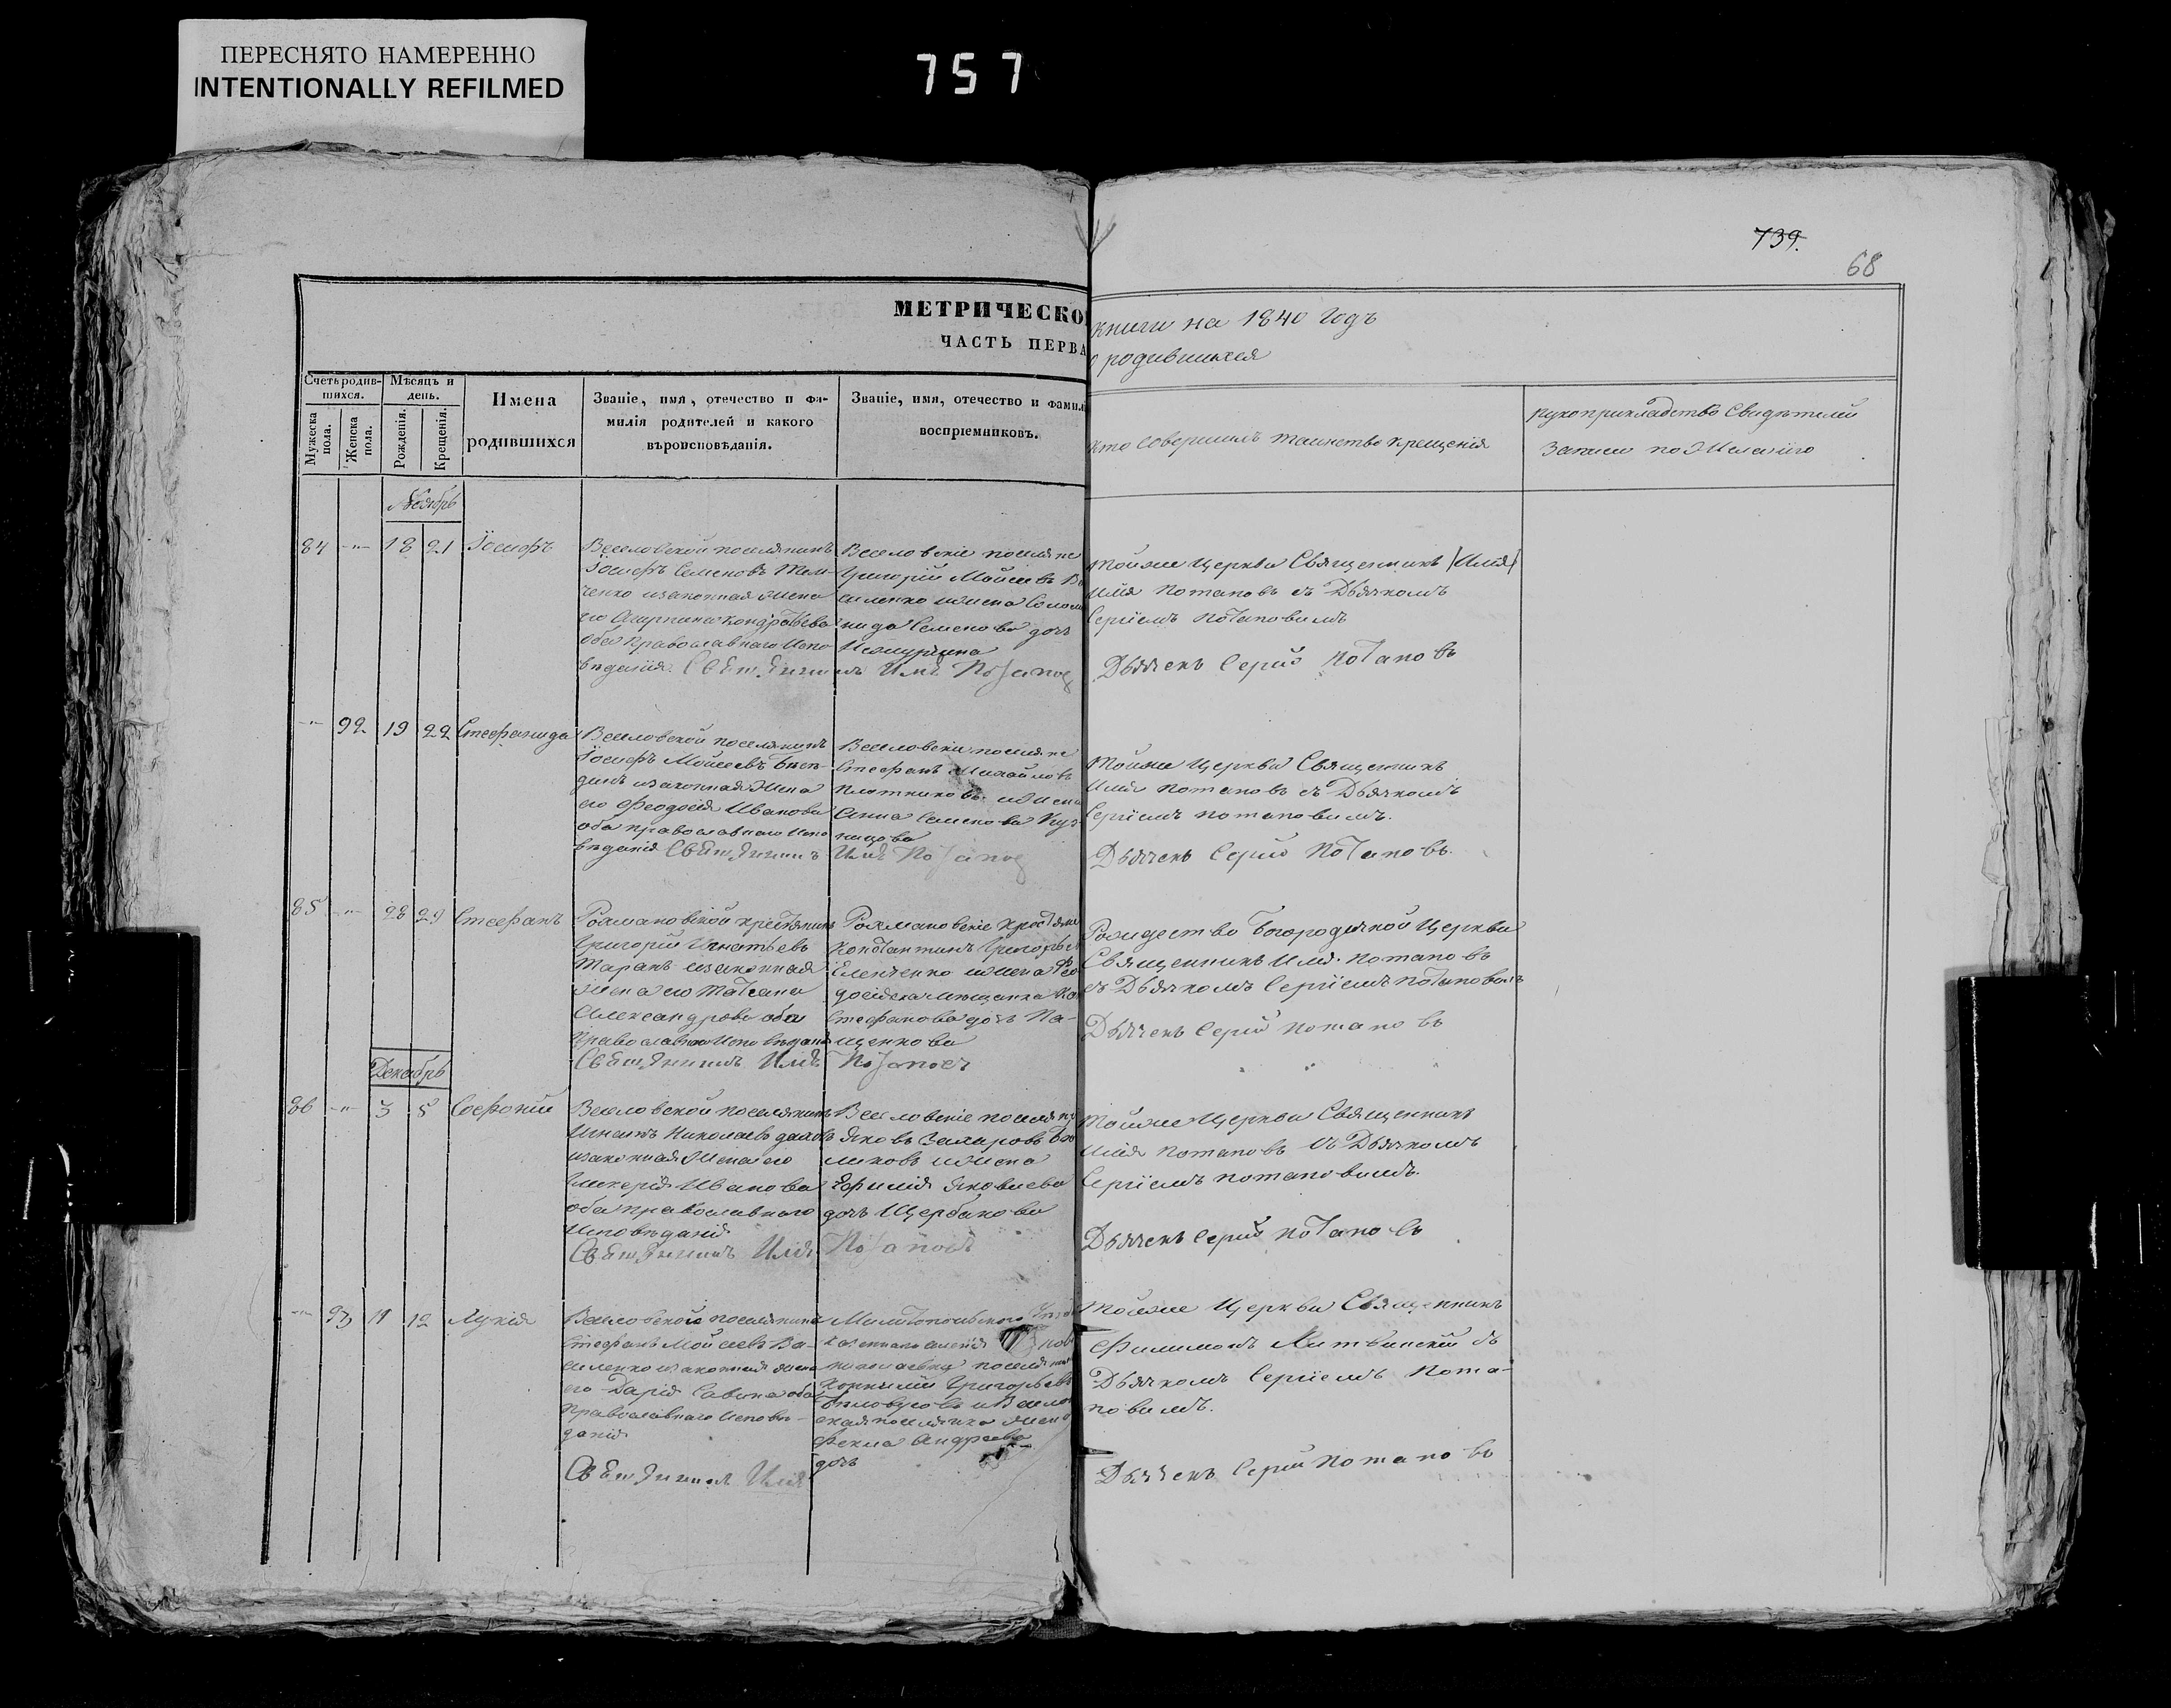 ПЕРЕСНЯТО НАМЕРЕННО
INTENTIONALLY REFILMED
757
739.
68
МЕТРИЧЕСКО
книги на 1840 годъ
ЧАСТЬ ПЕРВА
о родившихся
Счетъ родив-
шихся.
Мужеска
пола.
Женска
пола.
Мѣсяцъ и
день.
Рожденія.
Крещенія.
Имена
родившихся
Званіе, имя, отечество и фа-
милія родителей и какого
вѣроисповѣданія.
Званіе, имя, отечество и фамил
воспріемниковъ.
кто совершилъ таинство крещенія
рукоприкладство свидѣтелей
записи по желанію
Ноябрь
84 -"- 18 21 Іосифъ
Веселовской поселянинъ
Іосифъ Семеновъ
ченко и законная жена
его Кондратьева
оба православнаго Испо
вѣданія Священникъ Илія Потапов
Веселовскіе поселяне
Григорій Мойсеевъ Ва
силенко и жена
нида Семенова дочь
Тойже Церкви Священникъ /Илія/
Илія Потаповъ съ Дьячкомъ
Сергіемъ Потаповимъ
Дьячекъ Сергій Потаповъ
-"- 92 19 22 Стефанида
Веселовской поселянинъ
Іосифъ Мойсеевъ
динъ и законная жена
его Феодосія Иванова
оба православнаго Испо
вѣданія Священникъ Илія Потапов
Веселовскіе поселяне
Стефанъ Михайловъ
Плотниковъ и жена
Анна Семенова Куз-
нецова
Тойже Церкви Священникъ
Илія Потаповъ съ Дьячкомъ
Сергіемъ Потаповимъ.
Дьячекъ Сергій Потаповъ.
85 -"- 28 29 Стефанъ
крестянинъ
Григорій Игнатьевъ
Таранъ и законная
жена его Татіана
Александрова оба
Православнаго Исповѣданія
Священникъ Илія Потапов
крестяне
Константинъ Григорьев
и жена Фео
Стефанова дочь Па-
щенкова
Рождество Богородичной Церкви
Священникъ Илія Потаповъ
съ Дьячкомъ Сергіемъ Потаповимъ
Дьячекъ Сергій Потаповъ
Декабрь
86 -"- 3 5 Софоній
Веселовской поселянинъ
Игнатъ Николаевъ
и законная жена его
Гликерія Иванова
оба православнаго
Исповѣданія
Священникъ Илія Потапов
Веселовскіе поселяне
Яковъ Захаровъ
ликовъ и жена
Ефимія Яковлева
дочь Щербакова
Тойже Церкви Священникъ
Илія Потаповъ съ Дьячкомъ
Сергіемъ Потаповимъ.
Дьячекъ Сергій Потаповъ
-"- 93 11 12 Лукія
Веселовской поселянинъ
Стефанъ Мойсеевъ Ва-
силенко и законная жена
его Дарія Савина оба
Православнаго Исповѣ-
данія
Священникъ Илія
Мелитопольского
поселянин
Корнилій Григорьевъ
Бѣлоусовъ и Весело
ская поселянка жена
Фекла Андреева
дочь
Тойже Церкви Священникъ
Филимонъ съ
Дьячкомъ Сергіемъ Пота-
повимъ.
Дьячекъ Сергій Потаповъ